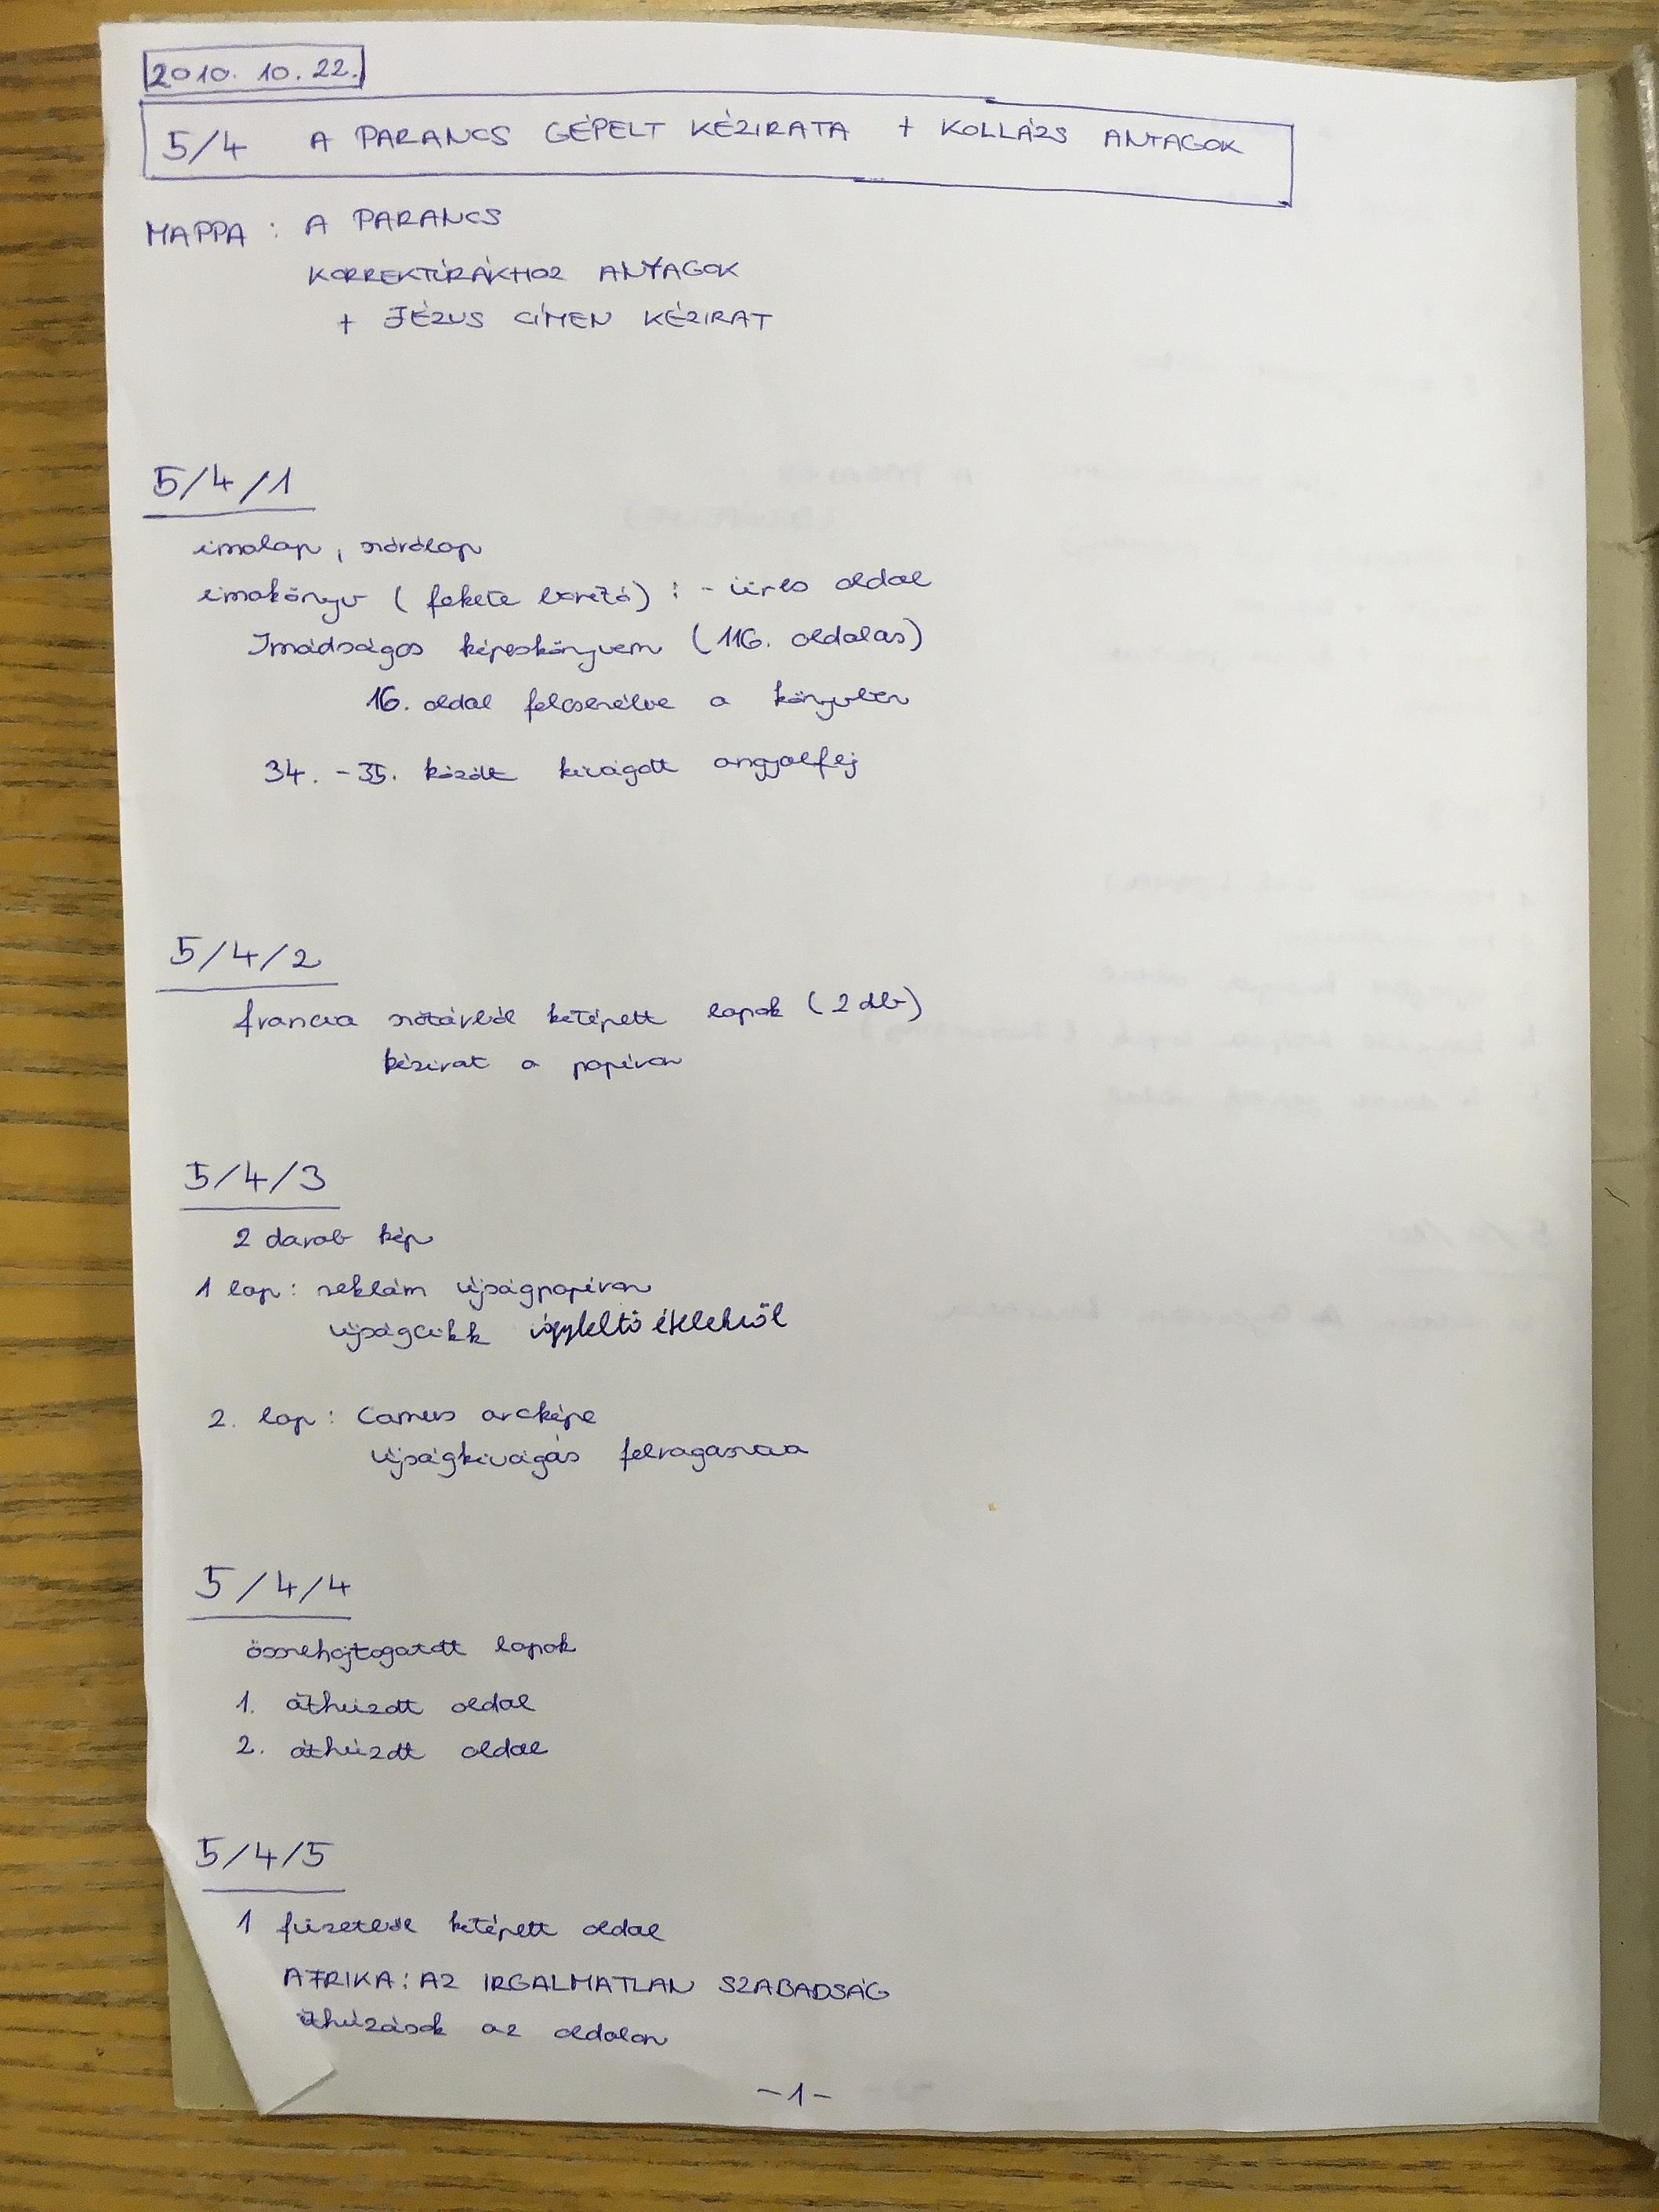 2010. 10. 22.
5/4 A PARANCS GÉPELT KÉZIRATA + KOLLÁZS ANYAGOK
MAPPA: A PARANCS
KORREKTÚRÁKHOZ ANYAGOK
+ JÉZUS CÍMEN KÉZIRAT
5/4/1
imalap, szórólap
imakönyv (fekete borító): - üres oldal
Imádságos képeskönyvem (116. oldalas)
16. oldal felcserélve a könyvben
34. - 35. között kivágott angyalfej
5/4/2
francia szótárból kitépett lapok (2 db)
kézirat a papíron
5/4/3
2 darab kép
1 lap: reklám újságpapíron
újságcikk vágykeltő ételekről
2. lap: Camus arcképe
újságkivágás felragasztva
5/4/4
összehajtogatott lapok
1. áthúzott oldal
2. áthúzott oldal
5/4/5
1 füzetből kitépett oldal
AFRIKA: AZ IRGALMATLAN SZABADSÁG
áthúzások az oldalon
- 1 -